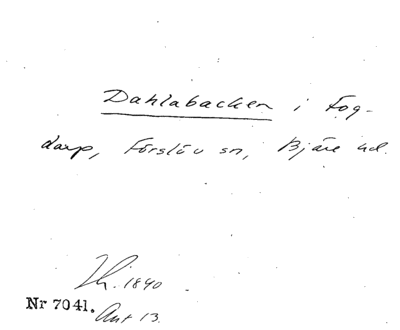 Dahlabacken i Fog-
darp, Förslöv sn, Bjäre hd.
Th. 1840
Nr 7041. Ant 13.